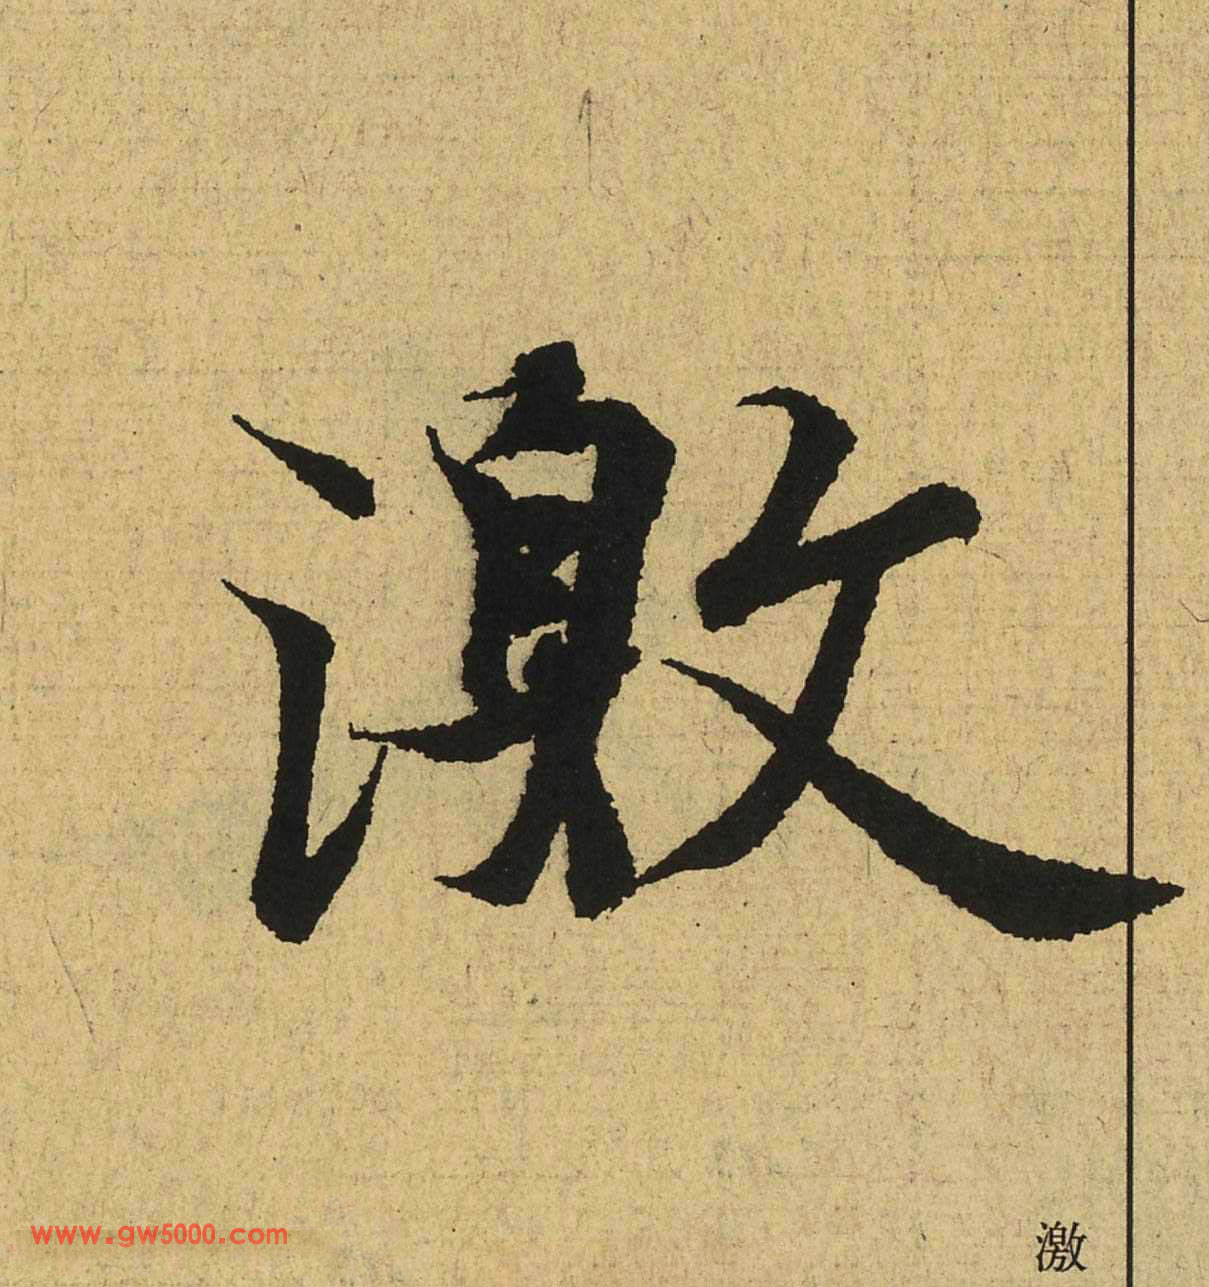 激
www.gw5000.com
激